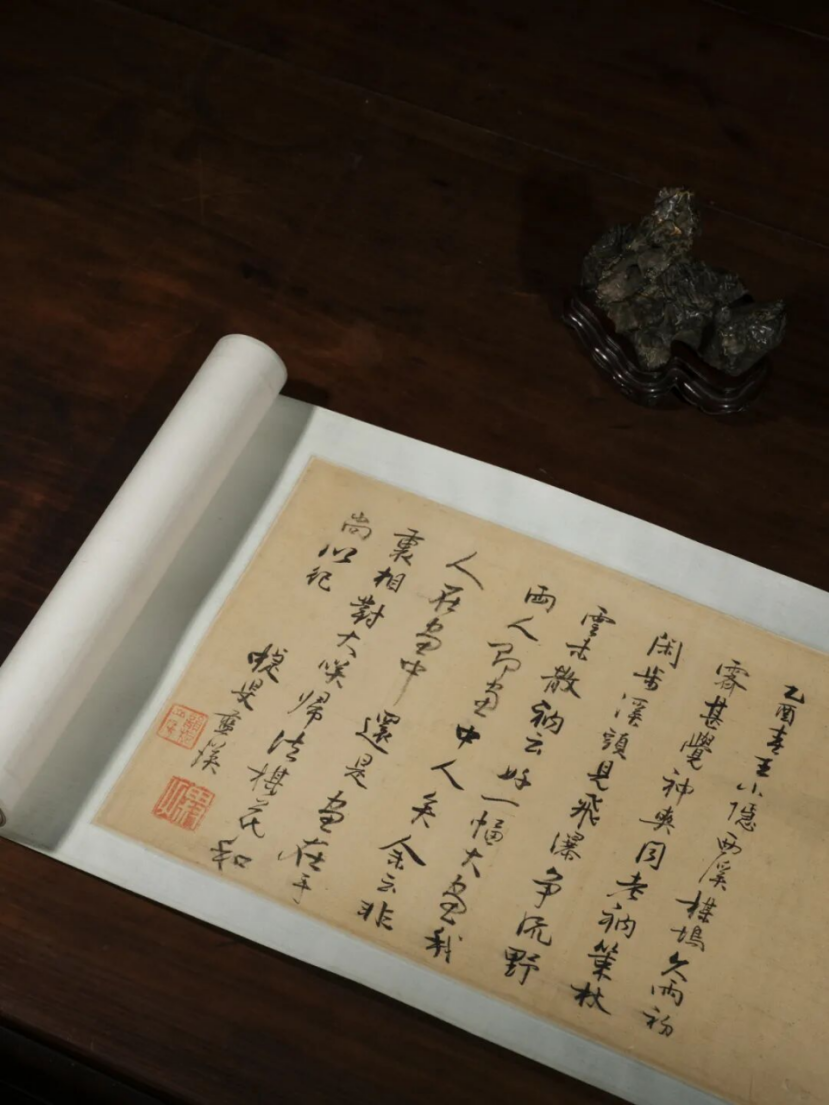 乙酉春王小隱西溪楳塢久雨初
霽甚覺神爽同老衲策杖
閑步溪頭見飛瀑争流野
雲未散衲云好一幅大畫我
兩人即畫中人矣余云非
人在畫中還是畫在手
裏相對大咲歸法楳花和
尚以紀
蜨叟藍瑛